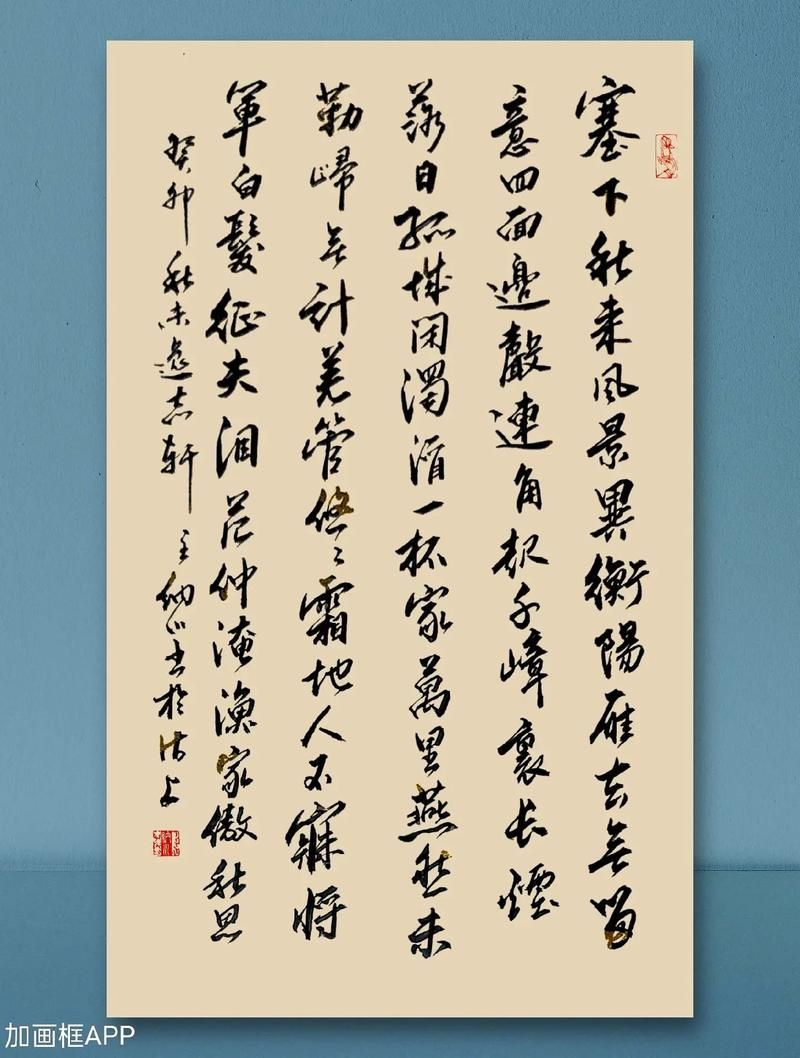 塞下秋来风景異衡陽雁去無留
意四面邊聲連角起千嶂裏長煙
落日孤城闭濁酒一杯家萬里燕然未
勒歸無計羌管悠々霜地人不寐將
軍白髮征夫泪范仲淹漁家傲秋思
癸卯秋末逸志轩主纳书於沽上
加画框APP